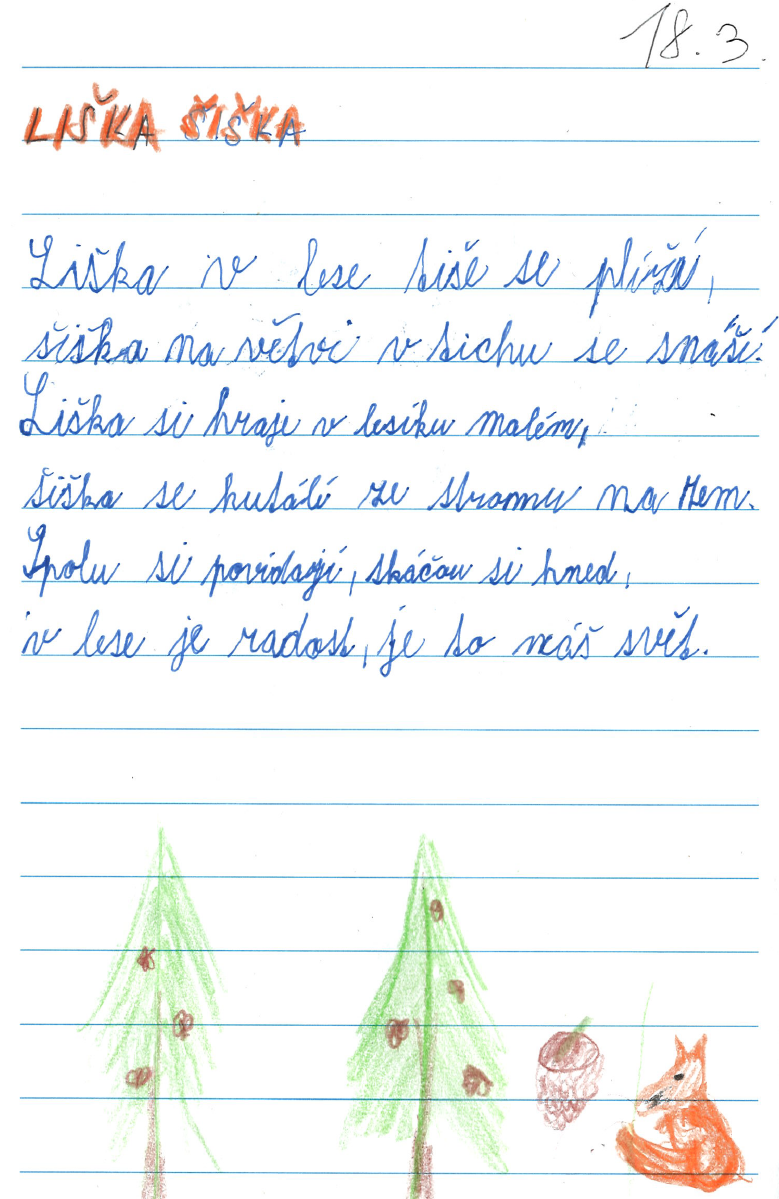 18. 3.
LIŠKA ŠIŠKA
Liška v lese tiše se plíží,
šiška na větvi v tichu se snáší.
Liška si hraje v lesíku malém,
šiška se kutálí ze stromu na zem.
Spolu si povídají, skáčou si hned,
v lese je radost, je to náš svět.